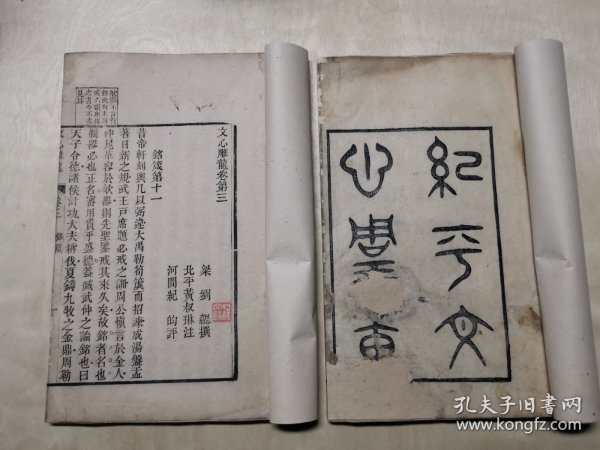 紀平文
文心雕龍卷第三
梁 劉勰撰
北平黃叔琳注
河間紀昀評
銘箴第十一
昔帝軒刻輿几以弼違大禹勒筍簴而招諫成湯盤盂
著日新之規武王戶席題必戒之訓周公慎言於金人
仲尼革容於欹器則先聖鑒戒其來久矣故銘者名也
觀器必也正名審用貴乎盛德蓋臧武仲之論銘也曰
天子令德諸侯計功大夫稱伐夏鑄九牧之金鼎周勒
文心雕龍 卷三 銘箴
孔夫子旧書网
www.kongfz.com